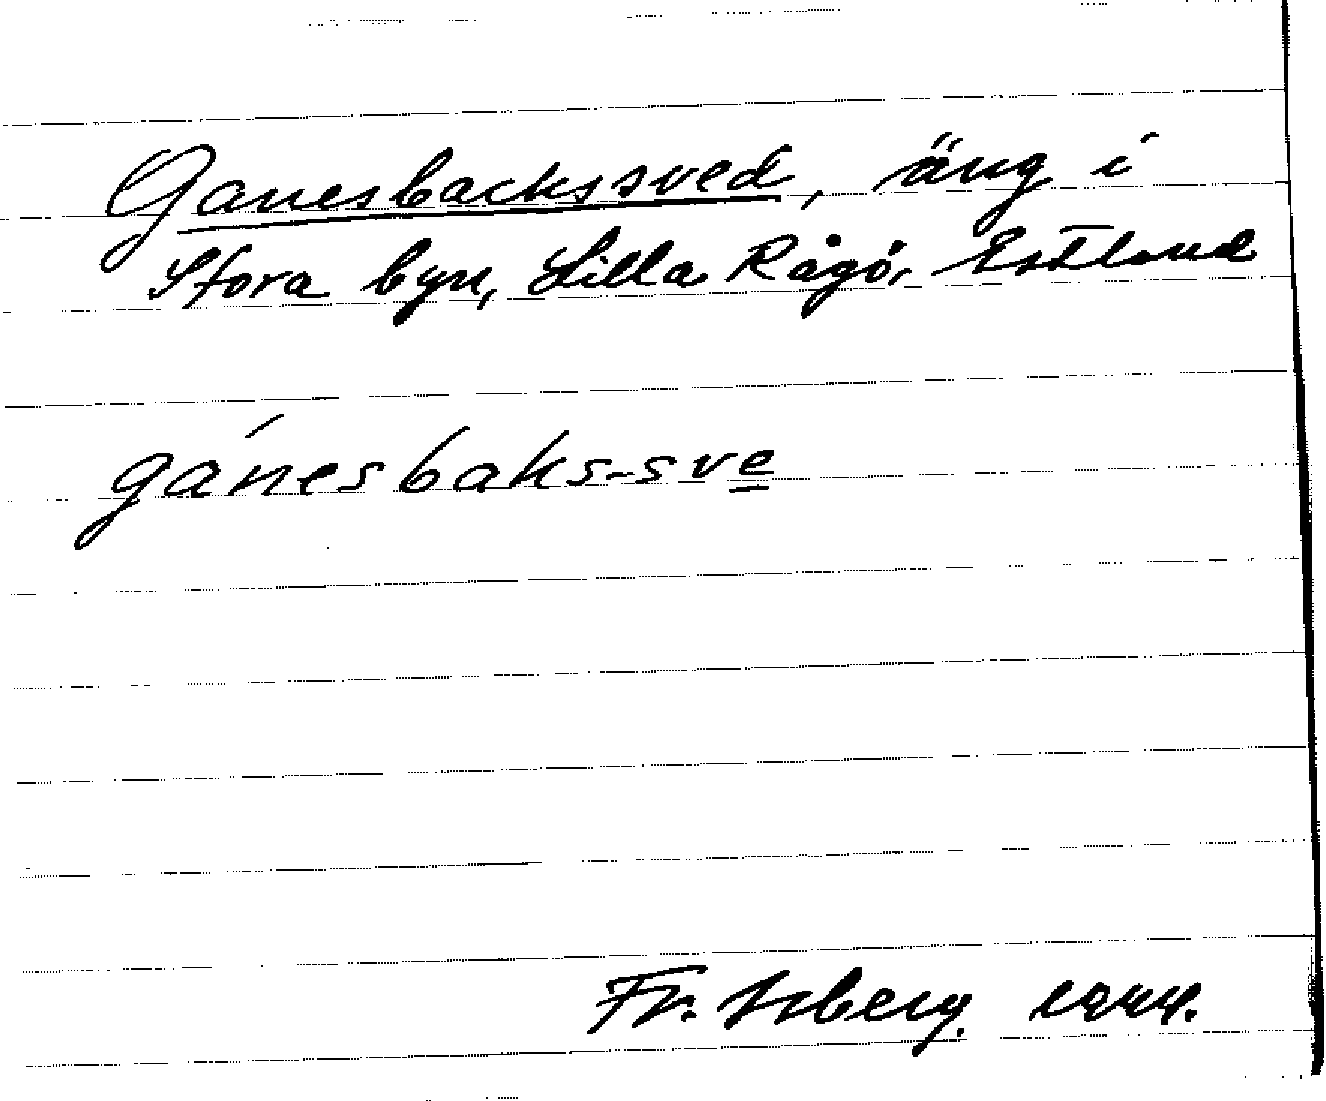 Ganesbackssved, äng i
Stora byn, Lilla Rågö, Estland
gánesbaks-sve
Fr. Isberg. 1944.